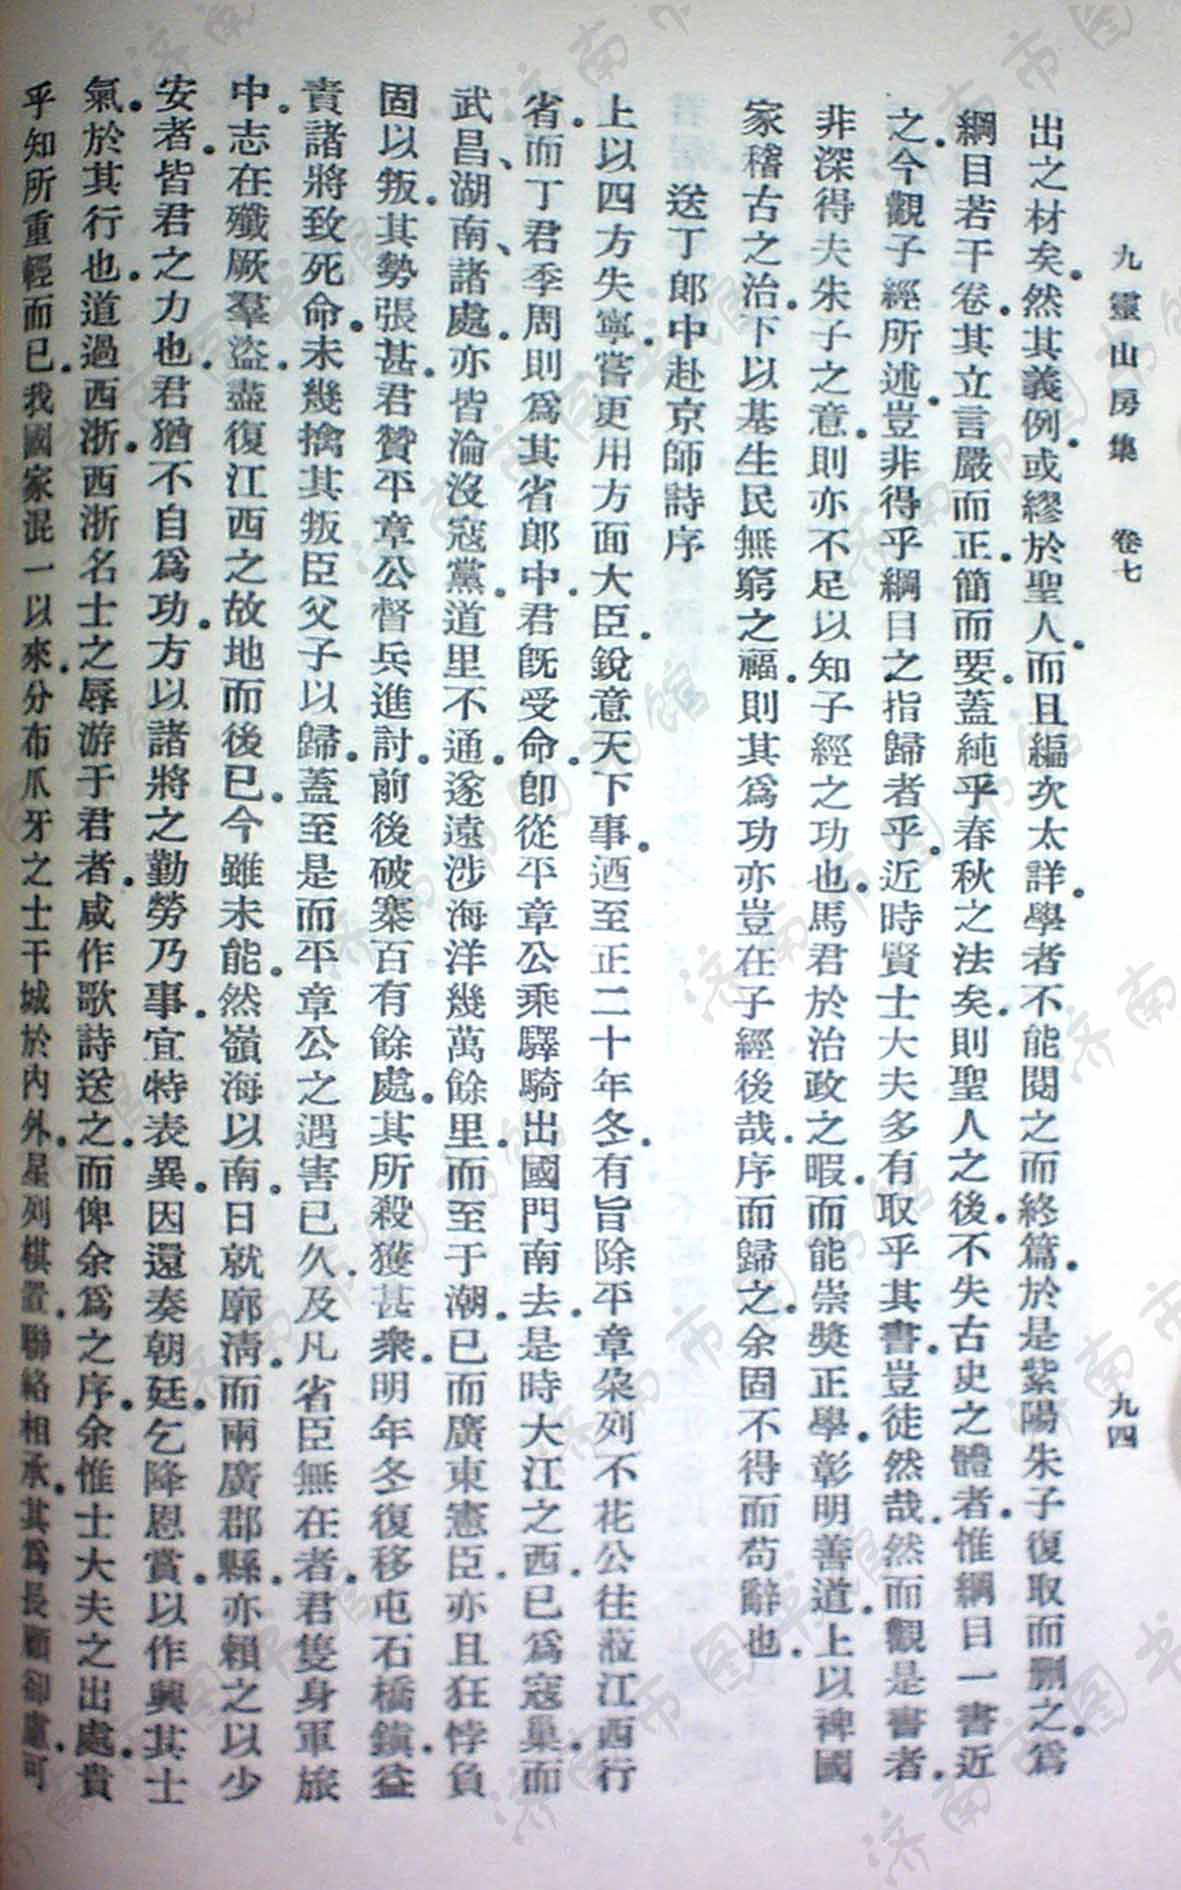 九靈山房集　卷七　九四
出之材矣。然其義例。或繆於聖人。而且編次太詳。學者不能閱之而終篇。於是紫陽朱子復取而刪之。爲
綱目若干卷。其立言嚴而正。簡而要。蓋純乎春秋之法矣。則聖人之後。不失古史之體者。惟綱目一書。近
之。今觀子經所述。豈非得乎綱目之指歸者乎。近時賢士大夫多有取乎其書。豈徒然哉。然而觀是書者。
非深得夫朱子之意。則亦不足以知子經之功也。馬君於治政之暇。而能崇獎正學。彰明善道。上以裨國
家稽古之治。下以基生民無窮之福。則其爲功亦豈在子經後哉。序而歸之。余固不得而苟辭也。
送丁郎中赴京師詩序
上以四方失寧。嘗更用方面大臣。銳意天下事。迺至正二十年冬。有旨除平章朶列不花公往蒞江西行
省。而丁君季周則爲其省郎中。君旣受命。卽從平章公乘驛騎出國門南去。是時大江之西。已爲寇巢。而
武昌、湖南、諸處。亦皆淪沒寇黨。道里不通。遂遠涉海洋幾萬餘里。而至于潮。已而廣東憲臣。亦且狂悖負
固以叛。其勢張甚。君贊平章公督兵進討。前後破寨百有餘處。其所殺獲甚衆。明年冬。復移屯石橋鎭。益
責諸將致死命。未幾擒其叛臣父子以歸。蓋至是而平章公之遇害已久。及凡省臣無在者。君隻身軍旅
中。志在殲厥羣盜。盡復江西之故地而後已。今雖未能。然嶺海以南。日就廓清。而兩廣郡縣。亦賴之以少
安者。皆君之力也。君猶不自爲功。方以諸將之勤勞乃事。宜特表異。因還奏朝廷。乞降恩賞。以作興其士
氣。於其行也。道過西浙。西浙名士之辱游于君者。咸作歌詩送之。而俾余爲之序。余惟士大夫之出處。貴
乎知所重輕而已。我國家混一以來。分布爪牙之士干城於內外。星列棋置。聯絡相承。其爲長顧卻慮。可